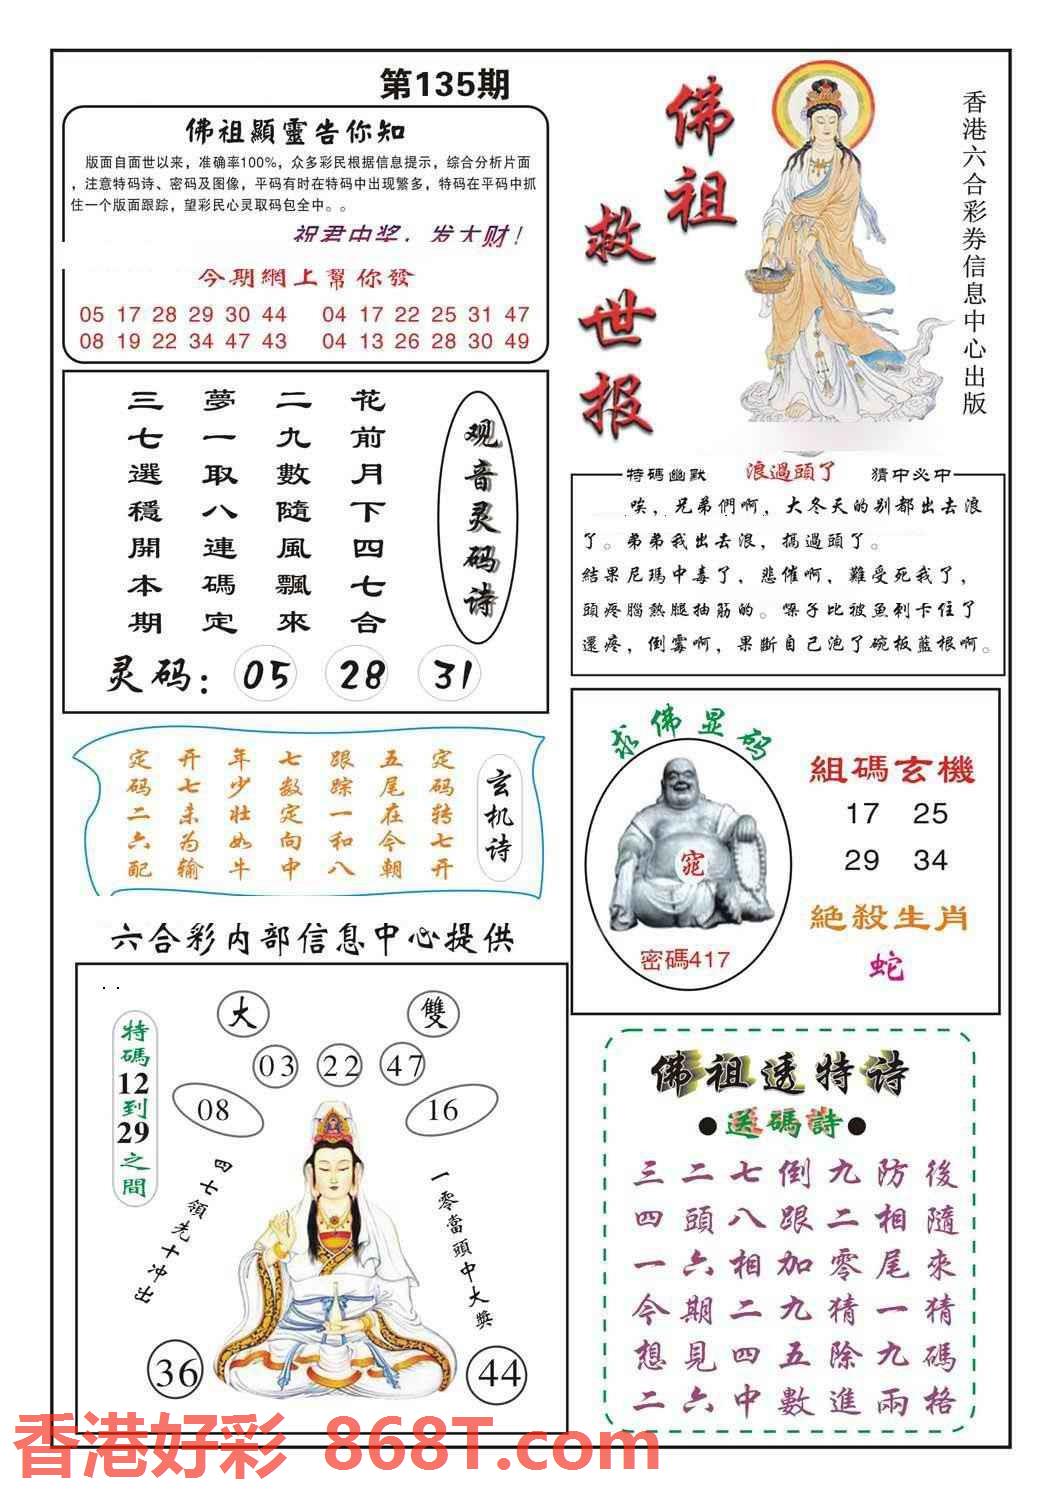 第135期
佛祖顯靈告你知
版面自面世以来，准确率100%，众多彩民根据信息提示，综合分析片面
，注意特码诗、密码及图像，平码有时在特码中出现繁多，特码在平码中抓
住一个版面跟踪，望彩民心灵取码包全中。。
祝君中奖，发大财！
今期網上幫你發
05 17 28 29 30 44 04 17 22 25 31 47
08 19 22 34 47 43 04 13 26 28 30 49
佛祖
救世报
香港六合彩券信息中心出版
观音灵码诗
花前月下四七合
二九數隨風飄來
夢一取八連碼定
三七選穩開本期
灵码：05 28 31
特碼幽默 浪過頭了 猜中必中
唉，兄弟們啊，大冬天的别都出去浪
了。弟弟我出去浪，搞過頭了。
結果尼瑪中毒了，悲催啊，難受死我了，
頭疼腦熱腿抽筋的。嗓子比被魚刺卡住了
還疼，倒霉啊，果斷自己泡了碗板藍根啊。
玄机诗
定码转七开
五尾在今朝
跟踪一和八
七数定向中
年少壮如牛
开七未为输
定码二六配
求佛显码
窕
密碼417
組碼玄機
17 25
29 34
絕殺生肖
蛇
六合彩内部信息中心提供
特碼12到29之間
大 雙
03 22 47
08 16
四七領先十冲出
一零當頭中大獎
36 44
佛祖透特诗
●送碼詩●
三二七倒九防後
四頭八跟二相隨
一六相加零尾來
今期二九猜一猜
想見四五除九碼
二六中數進兩格
香港好彩 868T.com